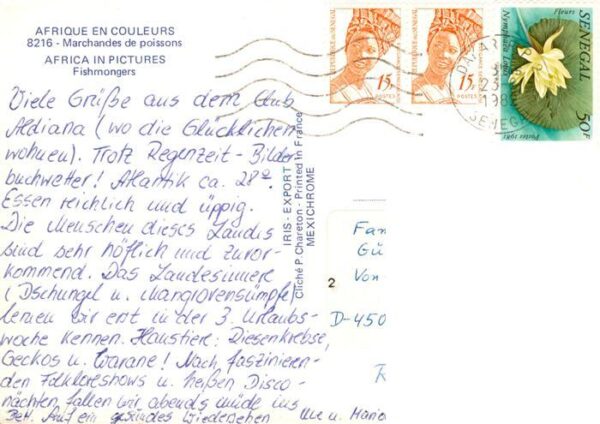 AFRIQUE EN COULEURS
8216 - Marchandes de poissons
AFRICA IN PICTURES
Fishmongers
Viele Grüße aus dem Club
Aldiana (wo die Glücklichen
wohnen). Trotz Regenzeit - Bilder
buchwetter! Atlantik ca. 28°.
Essen reichlich und üppig.
Die Menschen dieses Landes
sind sehr höflich und zuvor-
kommend. Das Landesinnere
(Dschungel u. Mangrovensümpfe)
lernen wir erst in der 3. Urlaubs-
woche kennen. Haustiere: Riesenkrebse,
Geckos u. Warane! Nach faszinieren-
den Folkloreshows u. heißen Disco-
nächten fallen wir abends müde ins
Bett. Auf ein gesundes Wiedersehen
Ute u. Mario
IRIS - EXPORT
Cliché P. Chareton - Printed in France
MEXICHROME
REPUBLIQUE DU SENEGAL
15F
POSTES
15F
POSTES
Fleurs
Nymphaea Lotus
SENEGAL
50F
Postes 1981
DAKAR
23
SENEGAL
Fam
Gü
Von
2
D-450